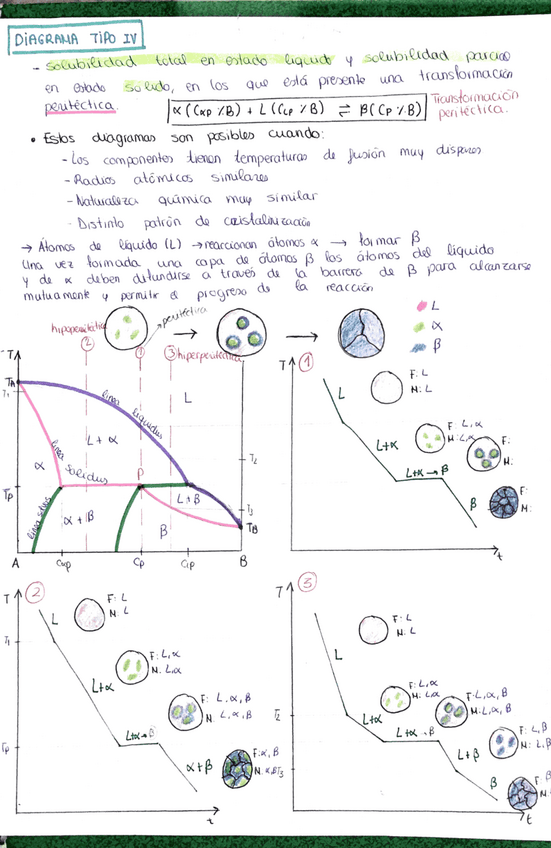 DIAGRAMA TIPO IV
- solubilidad total en estado líquido y solubilidad parcial
en estado sólido, en los que está presente una transformación
peritéctica.
α(Cαp %B) + L(CLp %B) ⇌ β(Cp %B)
Transformación
peritéctica.
• Estos diagramas son posibles cuando:
- Los componentes tienen temperaturas de fusión muy dispares
- Radios atómicos similares
- Naturaleza química muy similar
- Distinto patrón de cristalización
→ Átomos de líquido (L) → reaccionan átomos α → formar β
Una vez formada una capa de átomos β los átomos del líquido
y de α deben difundirse a través de la barrera de β para alcanzarse
mutuamente y permitir el progreso de la reacción
L
α
β
hipoperitéctica
peritéctica
hiperperitéctica
2
1
3
T
TA
T1
linea liquidus
L
L+α
linea solidus
α
T2
P
TP
L+β
T3
TB
linea solvus
α+β
β
A
Cαp
Cp
CLp
B
T
1
L
F: L
M: L
L+α
F: L,α
M: L,α
F:
M:
L+α → β
β
F:
M:
t
T
2
L
F: L
M: L
T1
L+α
F: L,α
M: L,α
F: L,α,β
M: L,α,β
L+α → β
TP
α+β
F: α,β
M: α,β
T3
T
3
L
F: L
M: L
F: L,α
M: L,α
T2
L+α
F: L,α,β
M: L,α,β
L+α → β
L+β
F: L,β
M: L,β
β
F: β
t